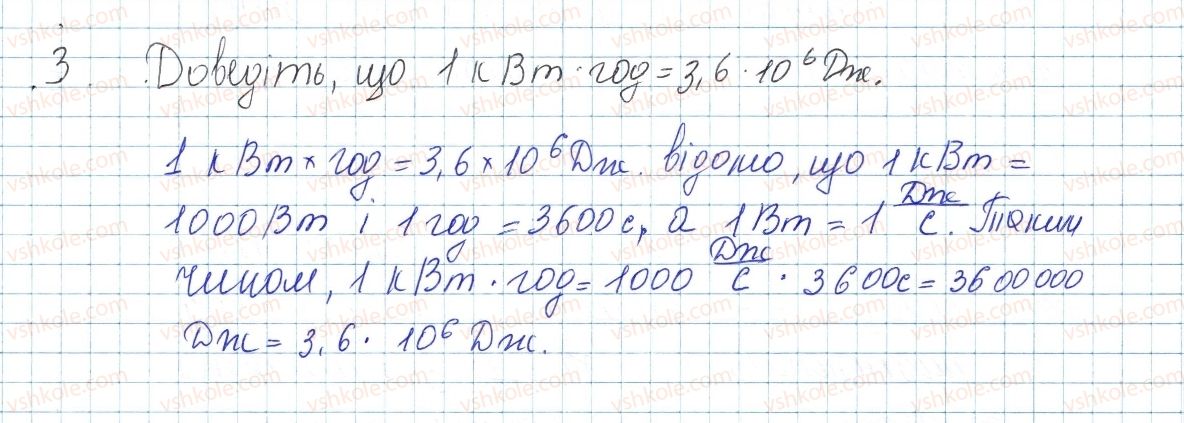 3. Доведіть, що 1 кВт·год = 3,6·10⁶ Дж.
1 кВт × год = 3,6 × 10⁶ Дж. відомо, що 1 кВт =
1000 Вт і 1 год = 3600 с, а 1 Вт = 1 Дж/с. Таким
чином, 1 кВт · год = 1000 Дж/с · 3600с = 3600000
Дж = 3,6 · 10⁶ Дж.
vshkole.com